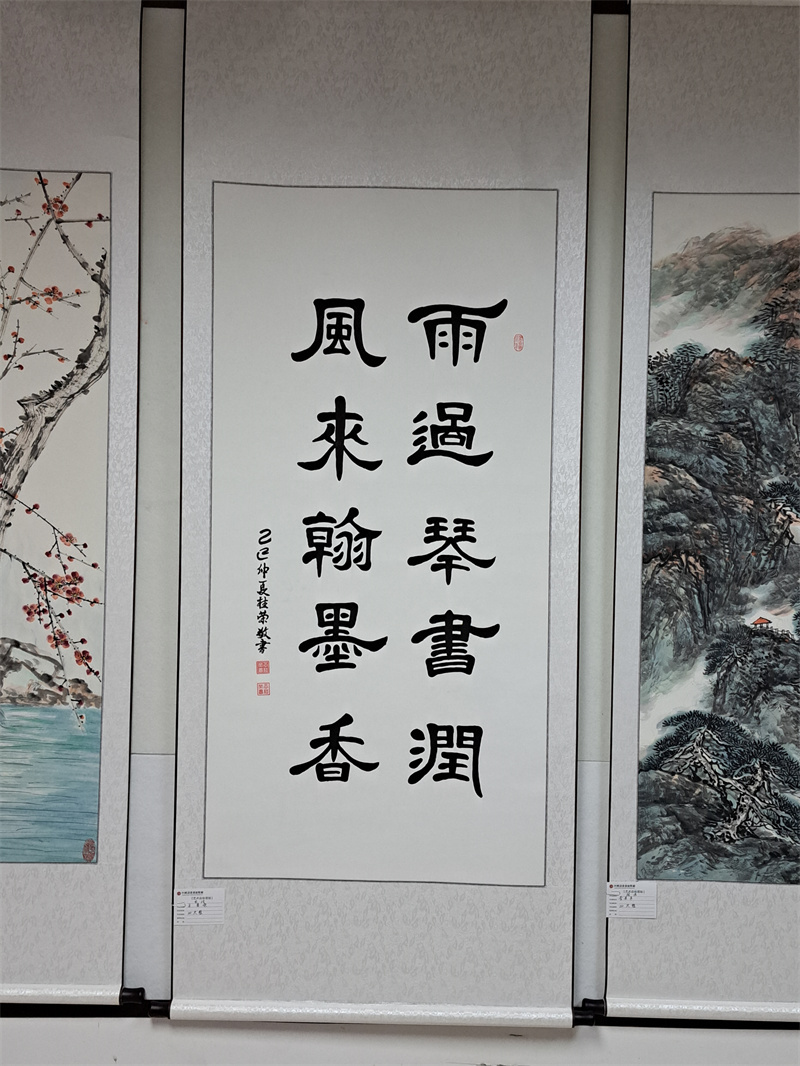 雨過琴書潤
風來翰墨香
乙巳仲夏桂榮敬書